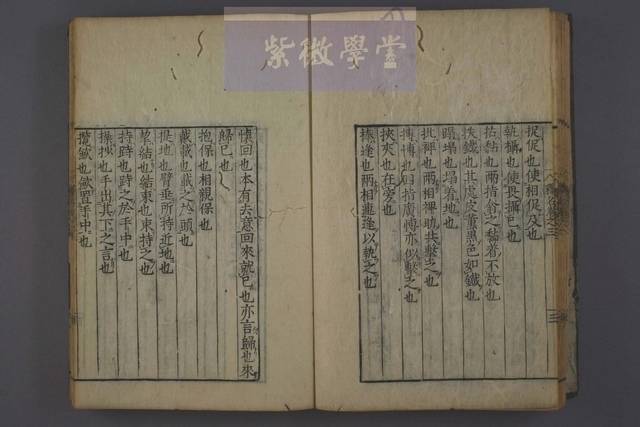 紫微學堂
捉促也使相促及也
執攝也使畏攝己也
拈黏也兩指翕之黏着不放也
抶鐵也其處皮薰黑色如鐵也
蹋榻也榻着地也
批裨也兩相裨助共擊之也
搏博也四指廣博亦似擊之也
挾夾也在旁也
捧逢也兩相逢以執之也
懷回也本有去意回來就己也亦言歸也來
歸己也
抱保也相親保也
戴載也載之於頭也
提地也臂垂所持近地也
挈結也結束也束持之也
持跱也跱之於手中也
操抄也手出其下之言也
攬斂也斂置手中也